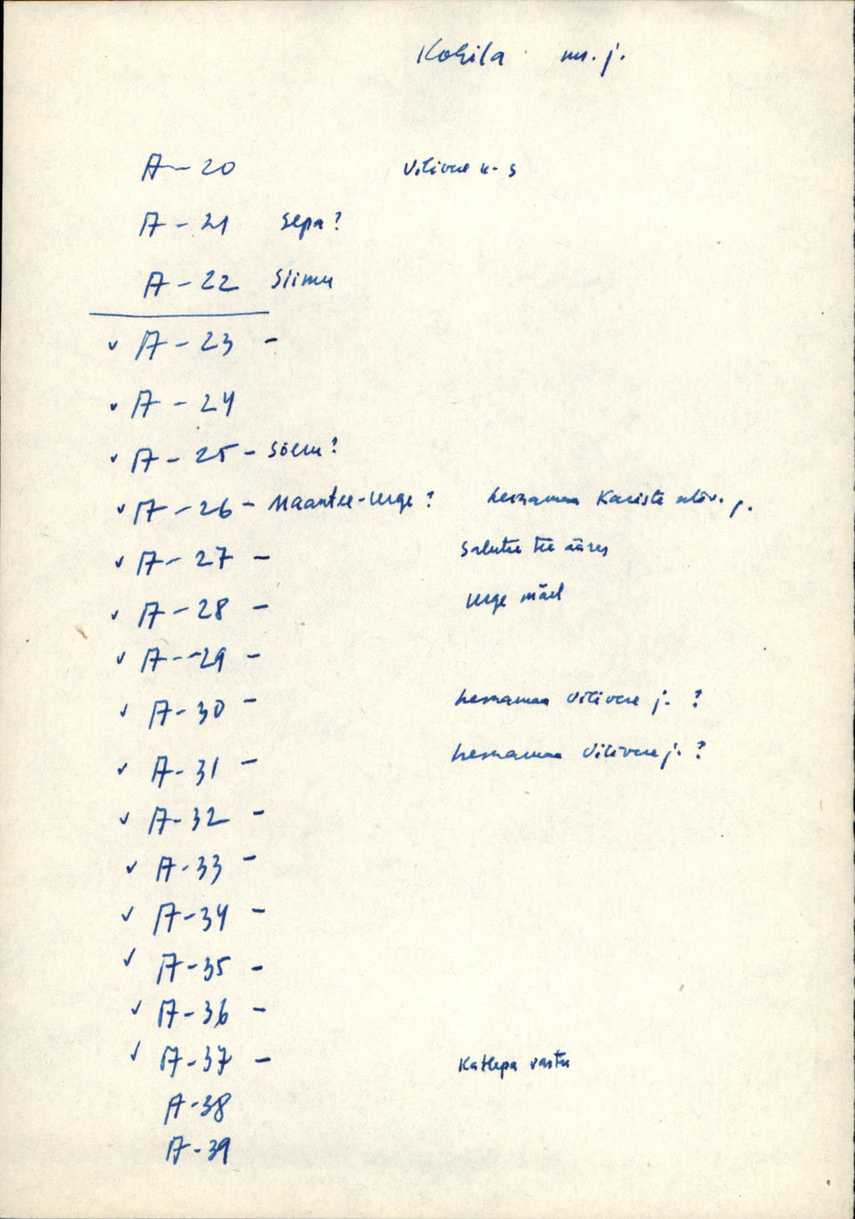 Kohila m. j.
A-20 Vilivere k-s
A-21 Sepa?
A-22 Siimu
✓ A-23 -
✓ A-24
✓ A-25 - Sõeru?
✓ A-26 - Maantee-Urge? heinamaa j.
✓ A-27 - Salutee tee ääres
✓ A-28 - Urge mäel
✓ A-29 -
✓ A-30 - heinamaa Vilivere j. ?
✓ A-31 - heinamaa Vilivere j. ?
✓ A-32 -
✓ A-33 -
✓ A-34 -
✓ A-35 -
✓ A-36 -
✓ A-37 - Katlepa vastu
A-38
A-39